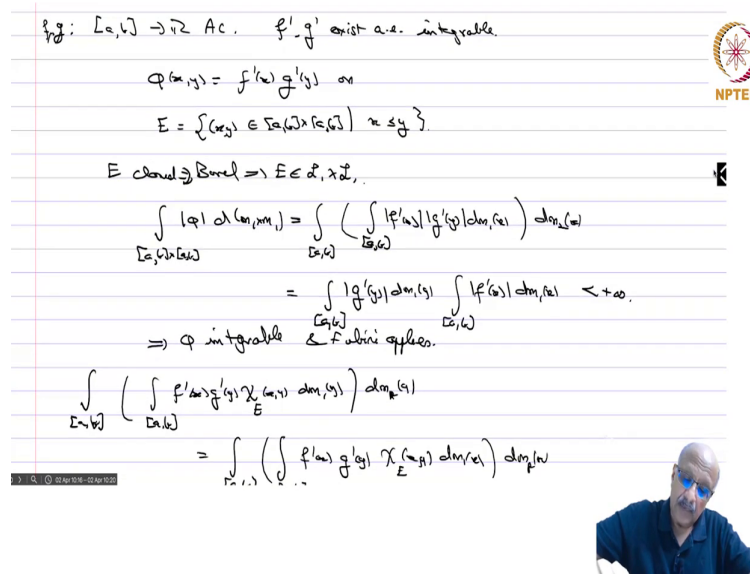 f,g : [a,b] → ℝ AC. f', g' exist a.e. integrable.
NPTEL
φ(x,y) = f'(x) g'(y) on
E = {(x,y) ∈ [a,b]×[a,b] | x ≤ y}.
E closed ⇒ Borel ⇒ E ∈ ℒ₁×ℒ₁.
∫_{[a,b]×[a,b]} |φ| d(m₁×m₁) = ∫_{[a,b]} ( ∫_{[a,b]} |f'(x)| |g'(y)| dm₁(x) ) dm₁(y)
= ∫_{[a,b]} |g'(y)| dm₁(y) ∫_{[a,b]} |f'(x)| dm₁(x) < +∞.
⇒ φ integrable & Fubini applies.
∫_{[a,b]} ( ∫_{[a,b]} f'(x) g'(y) χ_E(x,y) dm₁(y) ) dm₁(x)
= ∫_{[a,b]} ( ∫ f'(x) g'(y) χ_E(x,y) dm₁(x) ) dm₁(y)
02 Apr 10:16 - 02 Apr 10:20